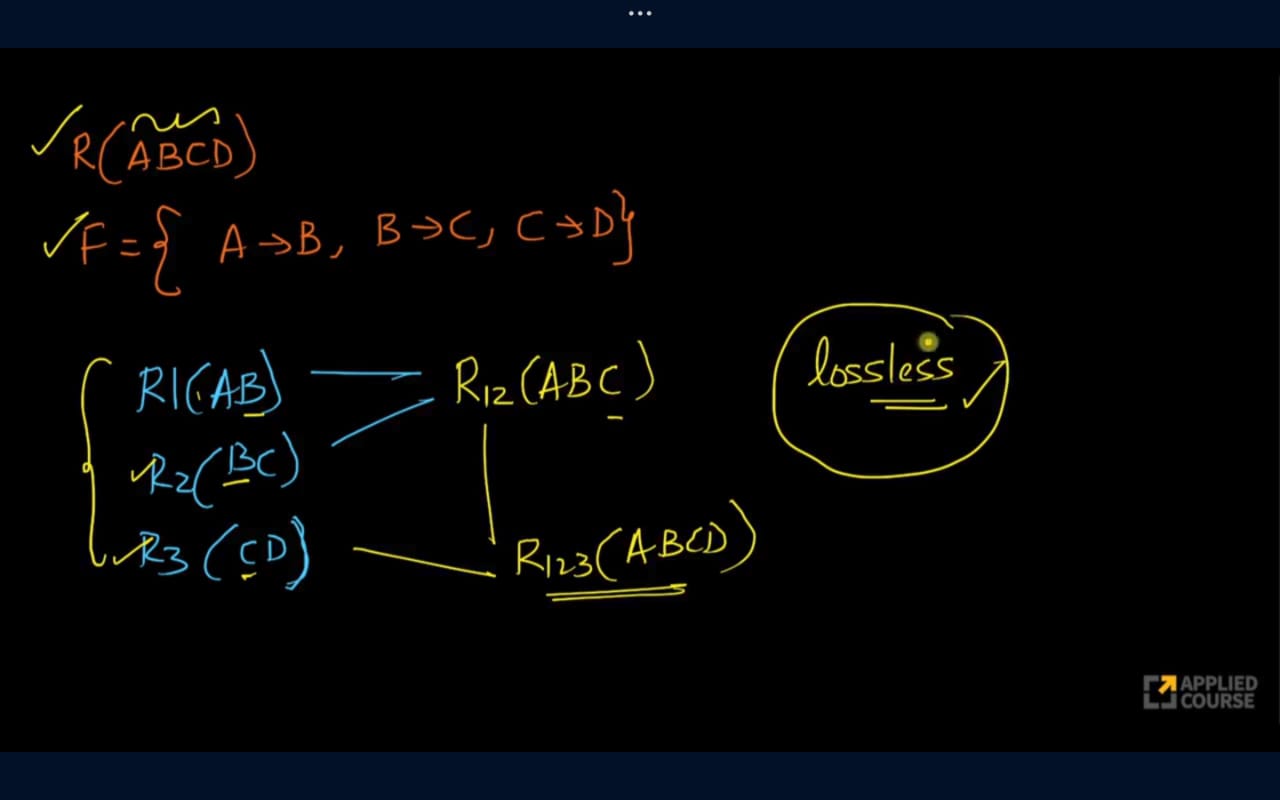 R(ABCD)
F = { A → B, B → C, C → D}
R1(AB)
R2(BC)
R3(CD)
R12(ABC)
R123(ABCD)
lossless
APPLIED
COURSE